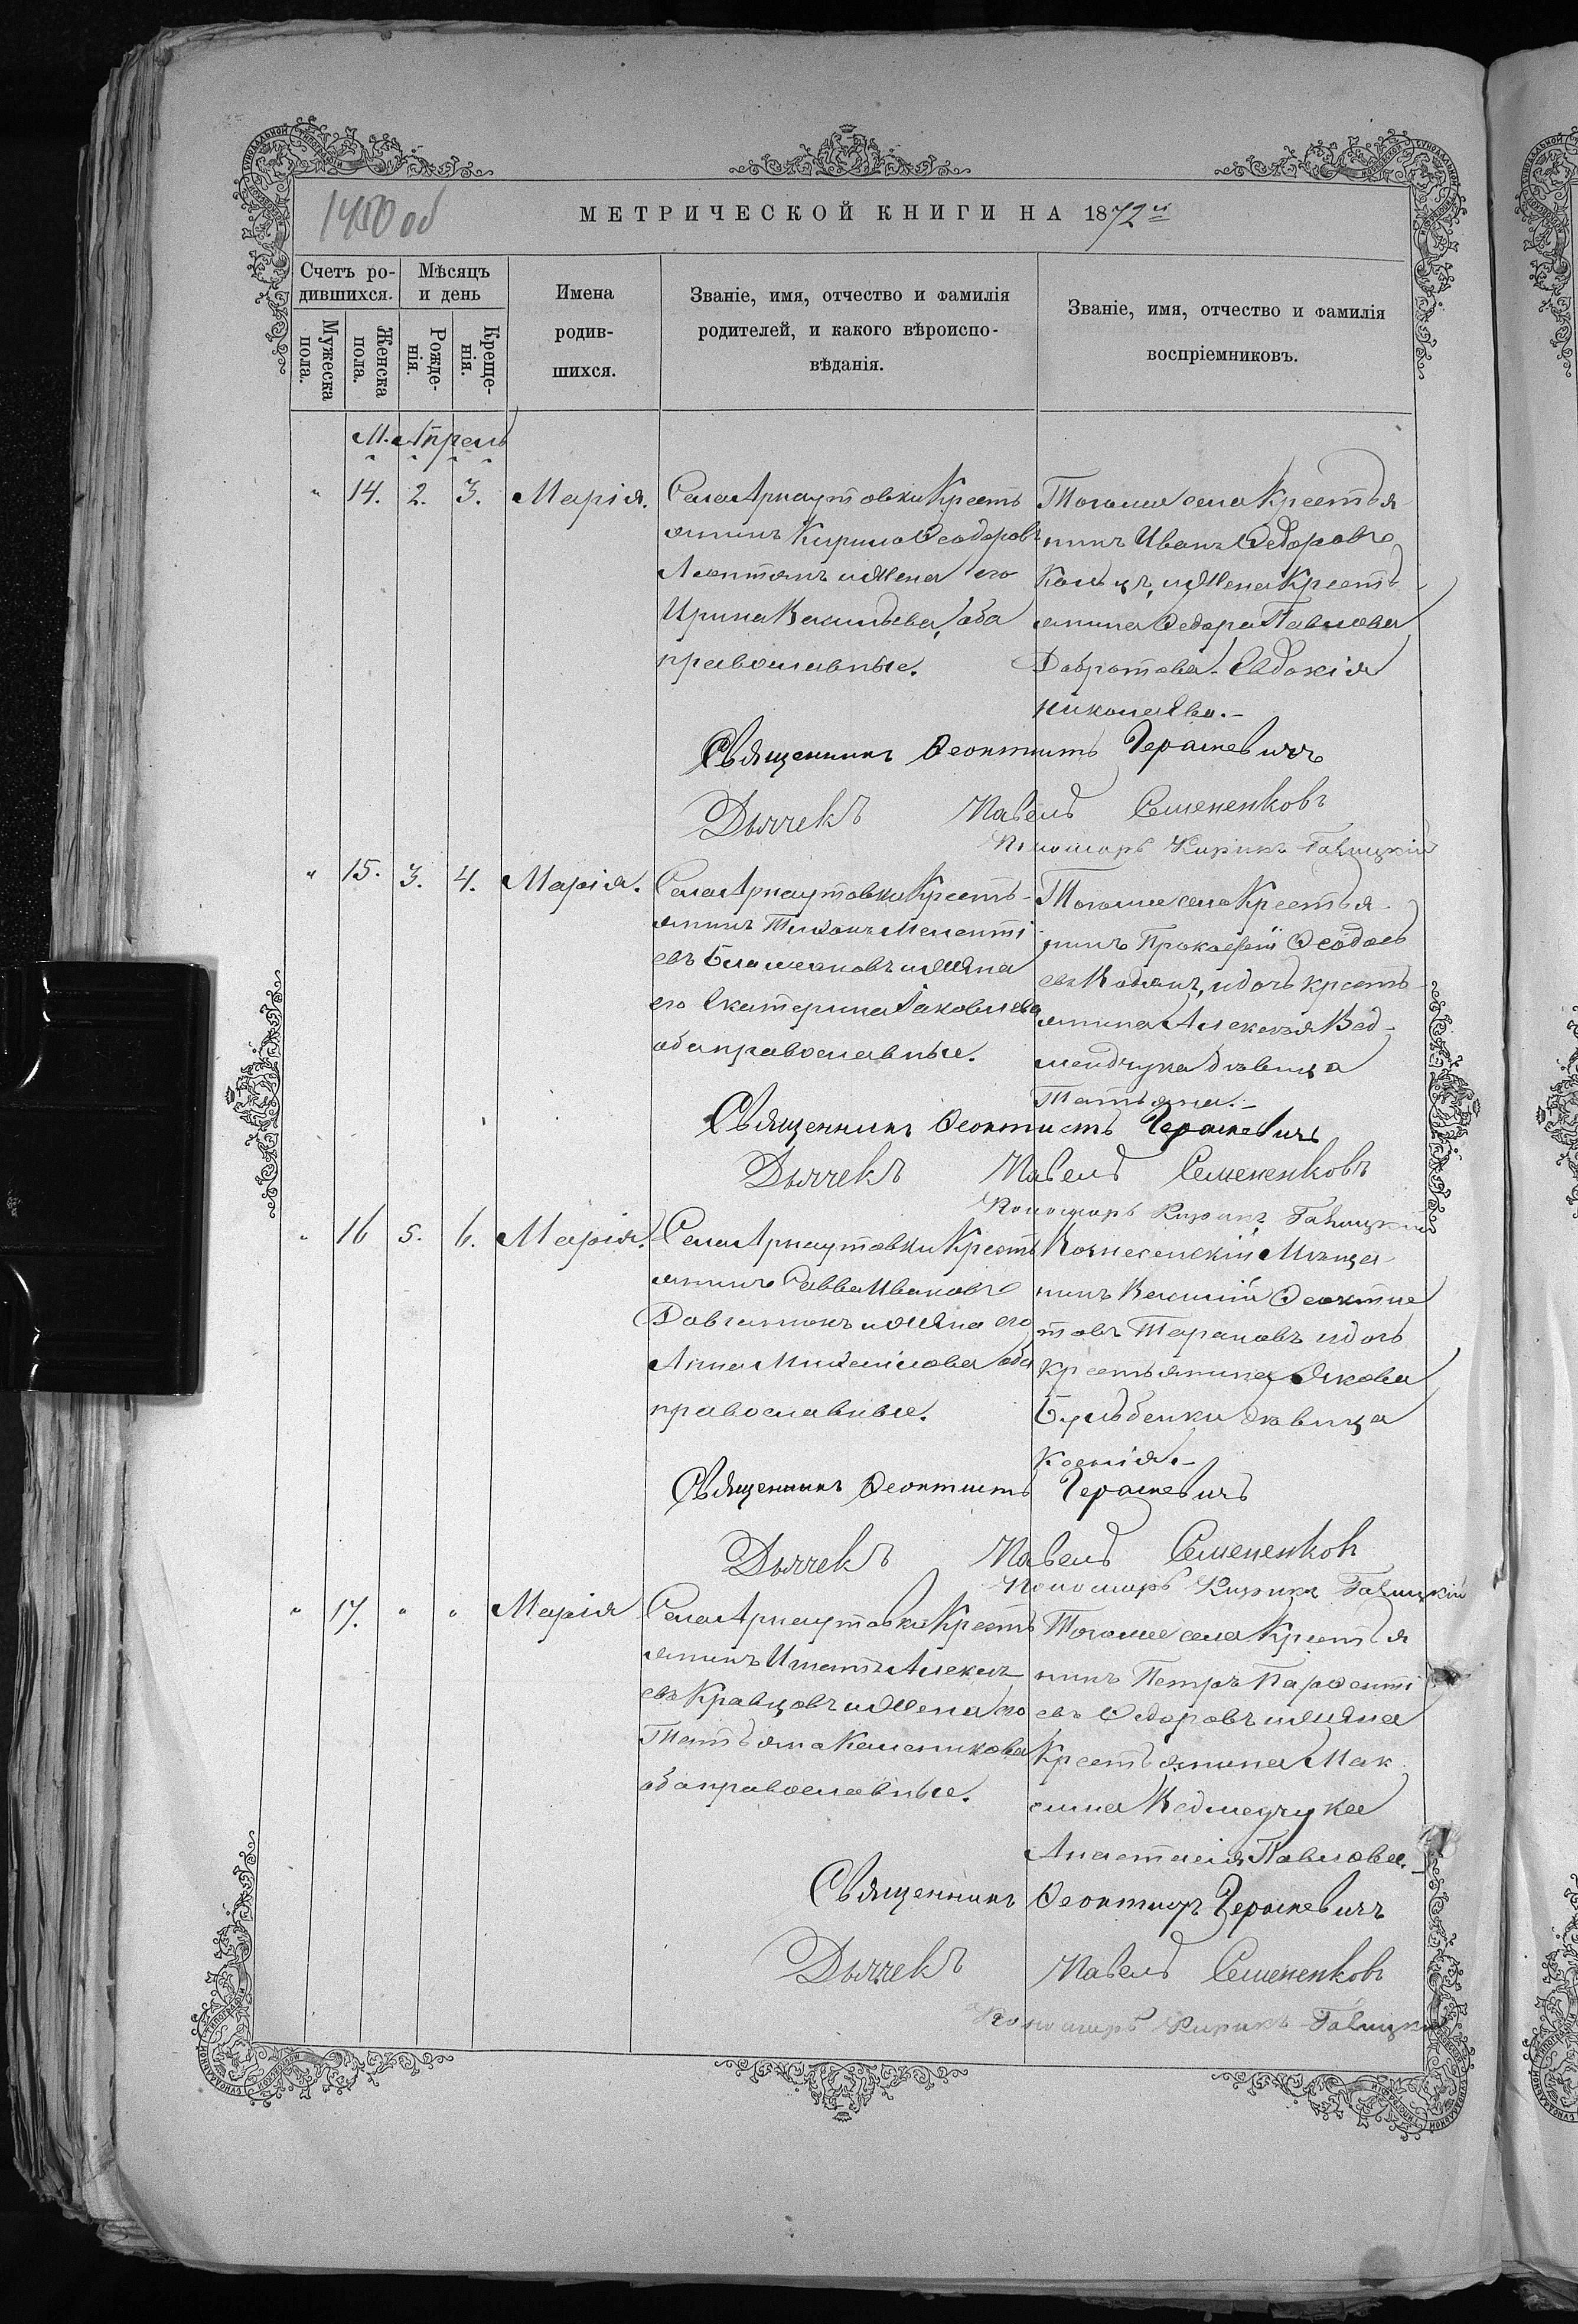 1450 об
МЕТРИЧЕСКОЙ КНИГИ НА 1872й
Счетъ ро-
дившихся.
Мужеска
пола.
Женска
пола.
Мѣсяцъ
и день
Рожде-
нія.
Креще-
нія.
Имена
родив-
шихся.
Званіе, имя, отчество и фамилія
родителей, и какого вѣроиспо-
вѣданія.
Званіе, имя, отчество и фамилія
воспріемниковъ.
М. Апрель
" 14. 2. 3. Марія.
Села Арнаутовки Кресть
янинъ Кирило Ѳеодоровъ
Леонтянъ и жена его
Ирина Васильева, оба
православные.
Тогоже села Крестья
нинъ Иванъ Ѳедоровъ
Кольцъ, и жена Кресть
янина Ѳедора Павлова
Добротова Евдокія
Николаева.-
Священникъ Ѳеоктистъ Черашевичъ
Дьячекъ Павелъ Семененковъ
Пономарь Кирикъ Галицкій
" 15. 3. 4. Марія.
Села Арнаутовки Кресть-
янинъ Тихонъ Меленті
евъ и жена
его Екатерина Іаковлева
оба православные.
Тогоже села Крестья
нинъ Прокофій Ѳеодось
евъ и дочь кресть-
янина Алексѣя Вед-
мендчука дѣвица
Татьяна.-
Священникъ Ѳеоктистъ Черашевичъ
Дьячекъ Павелъ Семененковъ
Пономарь Кирикъ Галицкій
" 16 5. 6. Марія.
Села Арнаутовки Кресть
янинъ Савва Ивановъ
Довгатюкъ и жена его
Анна Михаилова оба
православные.
Вознесенскій Мѣща
нинъ Василій Ѳеоктис
товъ Тарановъ и дочь
крестьянина Якова
Бульбенки дѣвица
Ксенія.-
Священникъ Ѳеоктистъ Черашевичъ
Дьячекъ Павелъ Семененковъ
Пономарь Кирикъ Галицкій
" 17. " " Марія
Села Арнаутовки Кресть
янинъ Игнатъ Алексѣ
евъ Кравцовъ и жена его
Татьяна Калениковa
оба православные.
Тогоже села Крестья
нинъ Петръ Парѳенті
евъ Ѳедоровъ и жена
Крестьянина Мак
сима Ведмедчука
Анастасія Павлова.-
Священникъ Ѳеоктистъ Черашевичъ
Дьячекъ Павелъ Семененковъ
Пономарь Кирикъ Галицкій